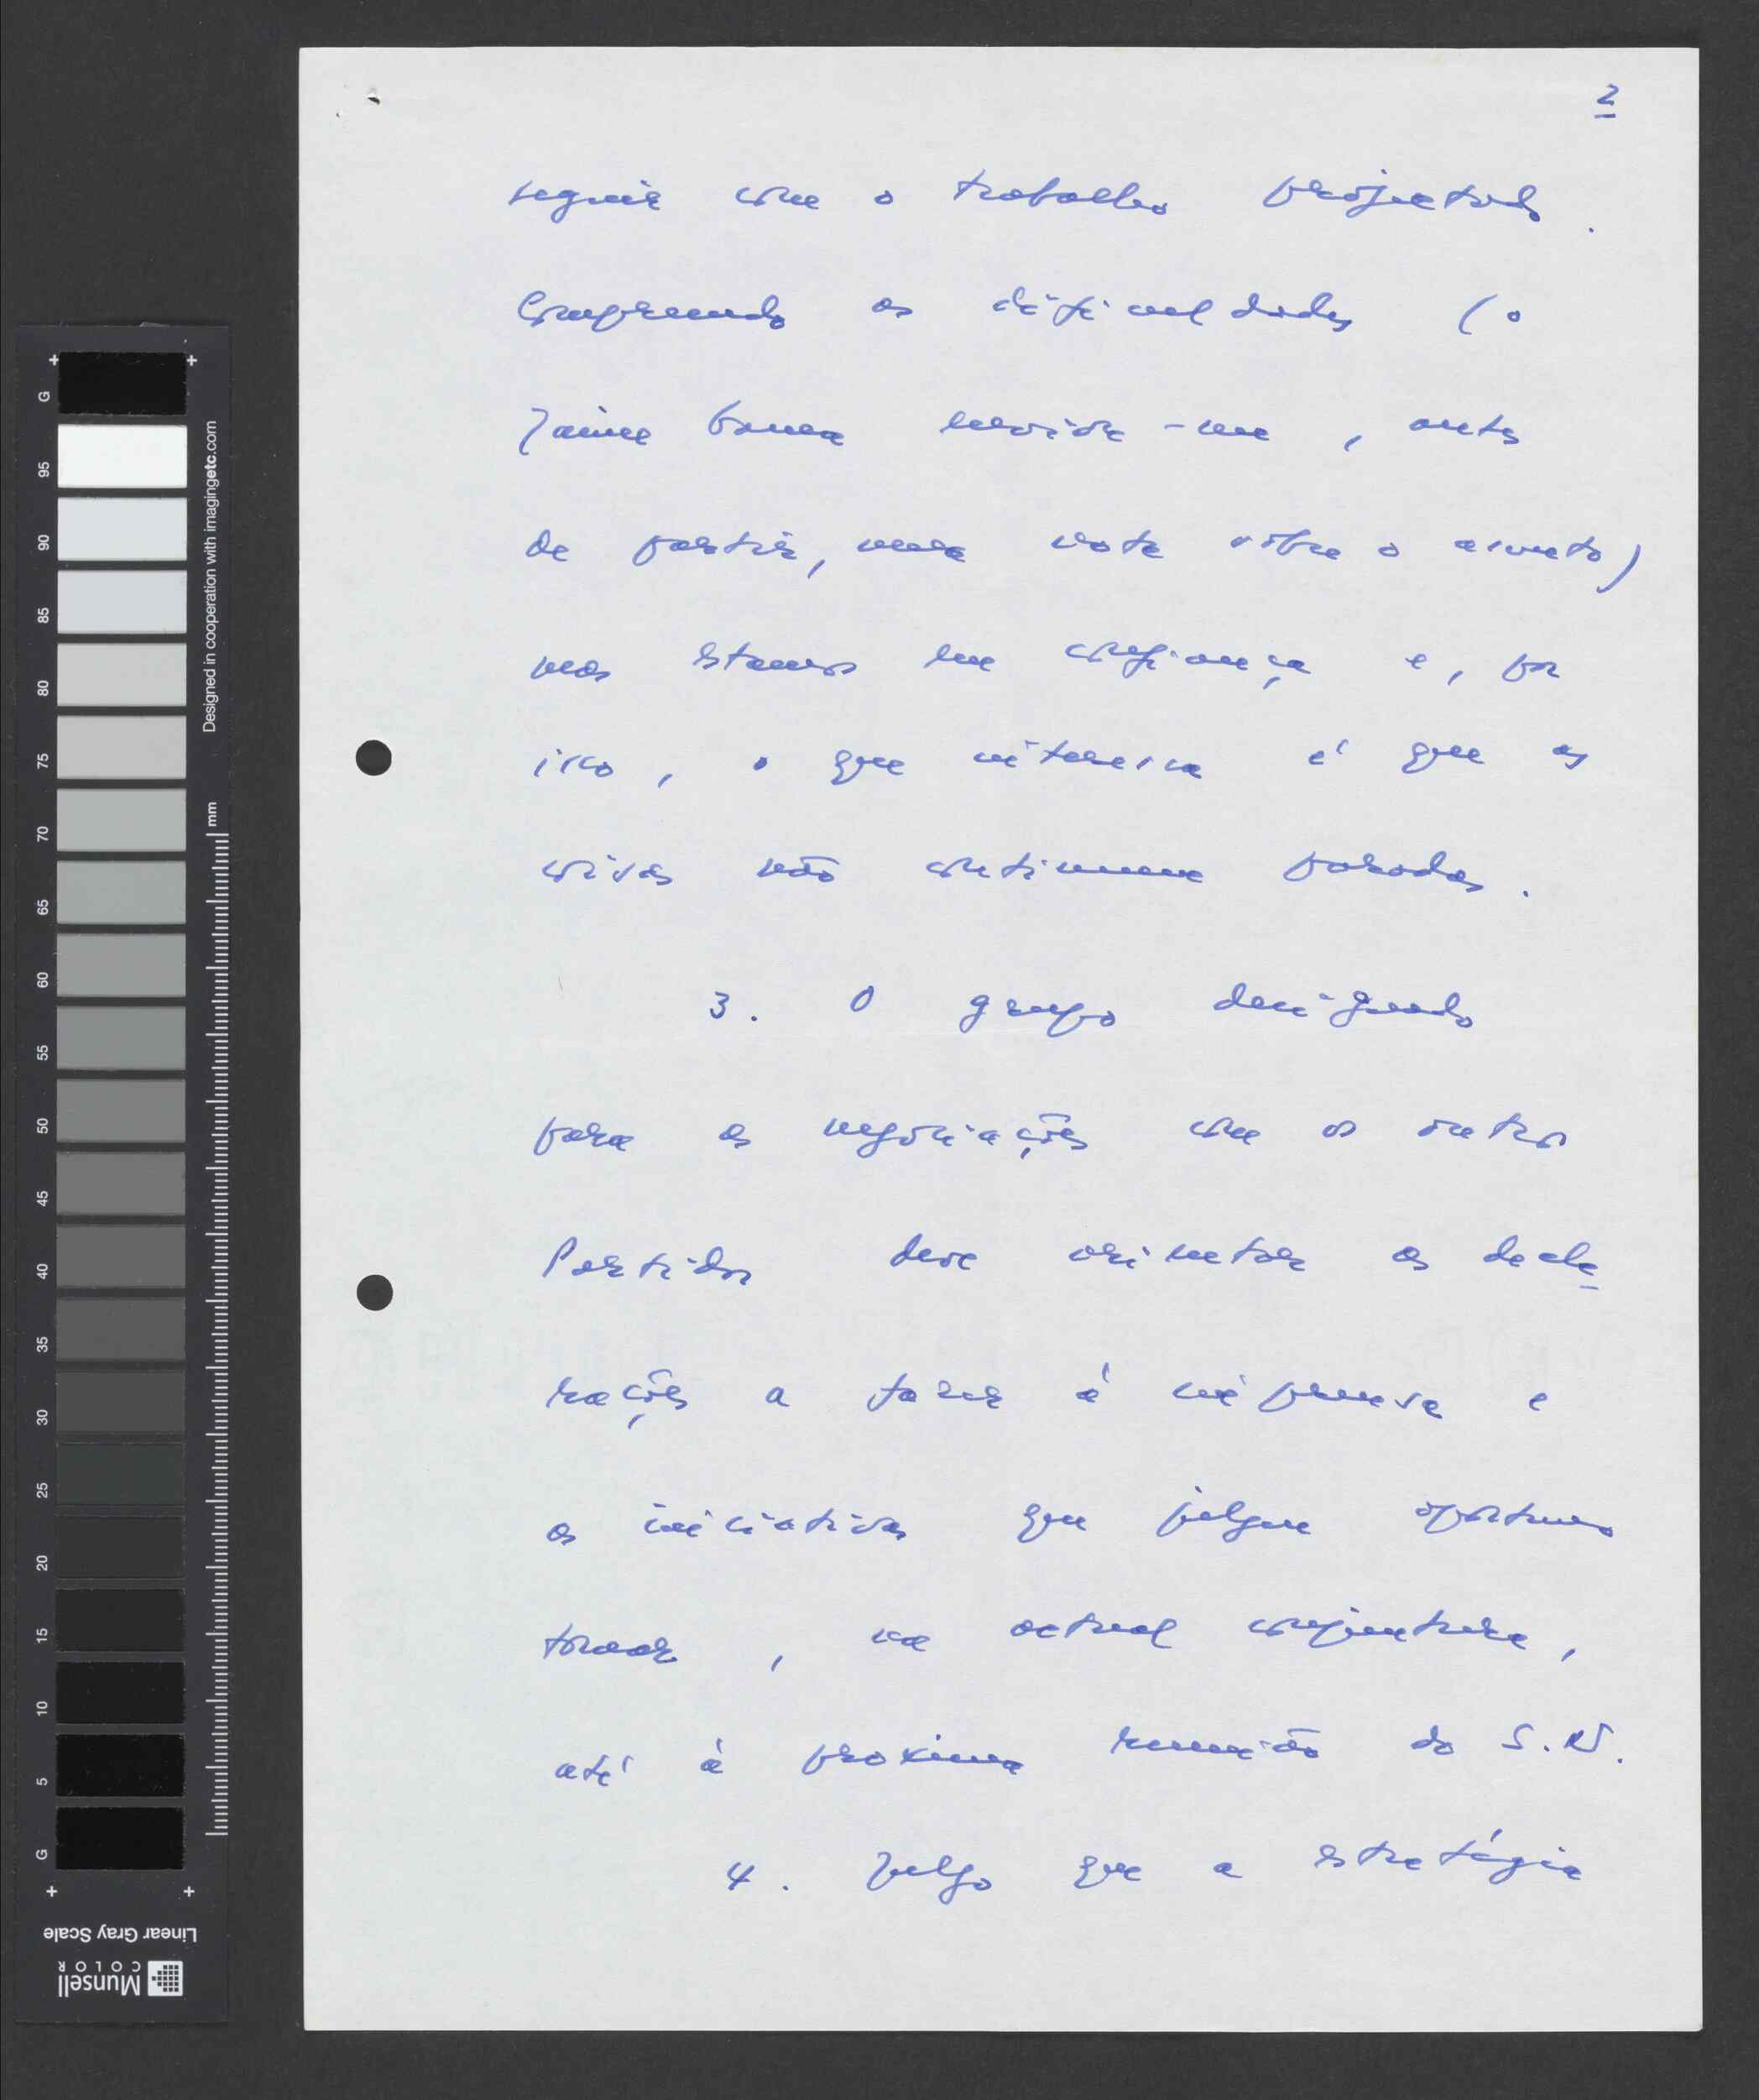 2
seguir com o trabalho projectado.
Compreendo as dificuldades (o
Jaime Gama enviou-me, antes
de partir, uma nota sobre o assunto)
mas estamos em confiança e, por
isso, o que interessa é que as
coisas não continuem paradas.
3. O grupo designado
para as negociações com os outros
Partidos deve orientar as decla
rações a fazer à imprensa e
as iniciativas que julgue oportuno
tomar, na actual conjuntura,
até à proxima reunião do S.N.
4. Julgo que a estratégia
G
95
90
85
80
75
70
65
60
55
50
45
40
35
30
25
20
15
10
5
G
Designed in cooperation with imagingetc.com
mm
Linear Gray Scale
Munsell
COLOR